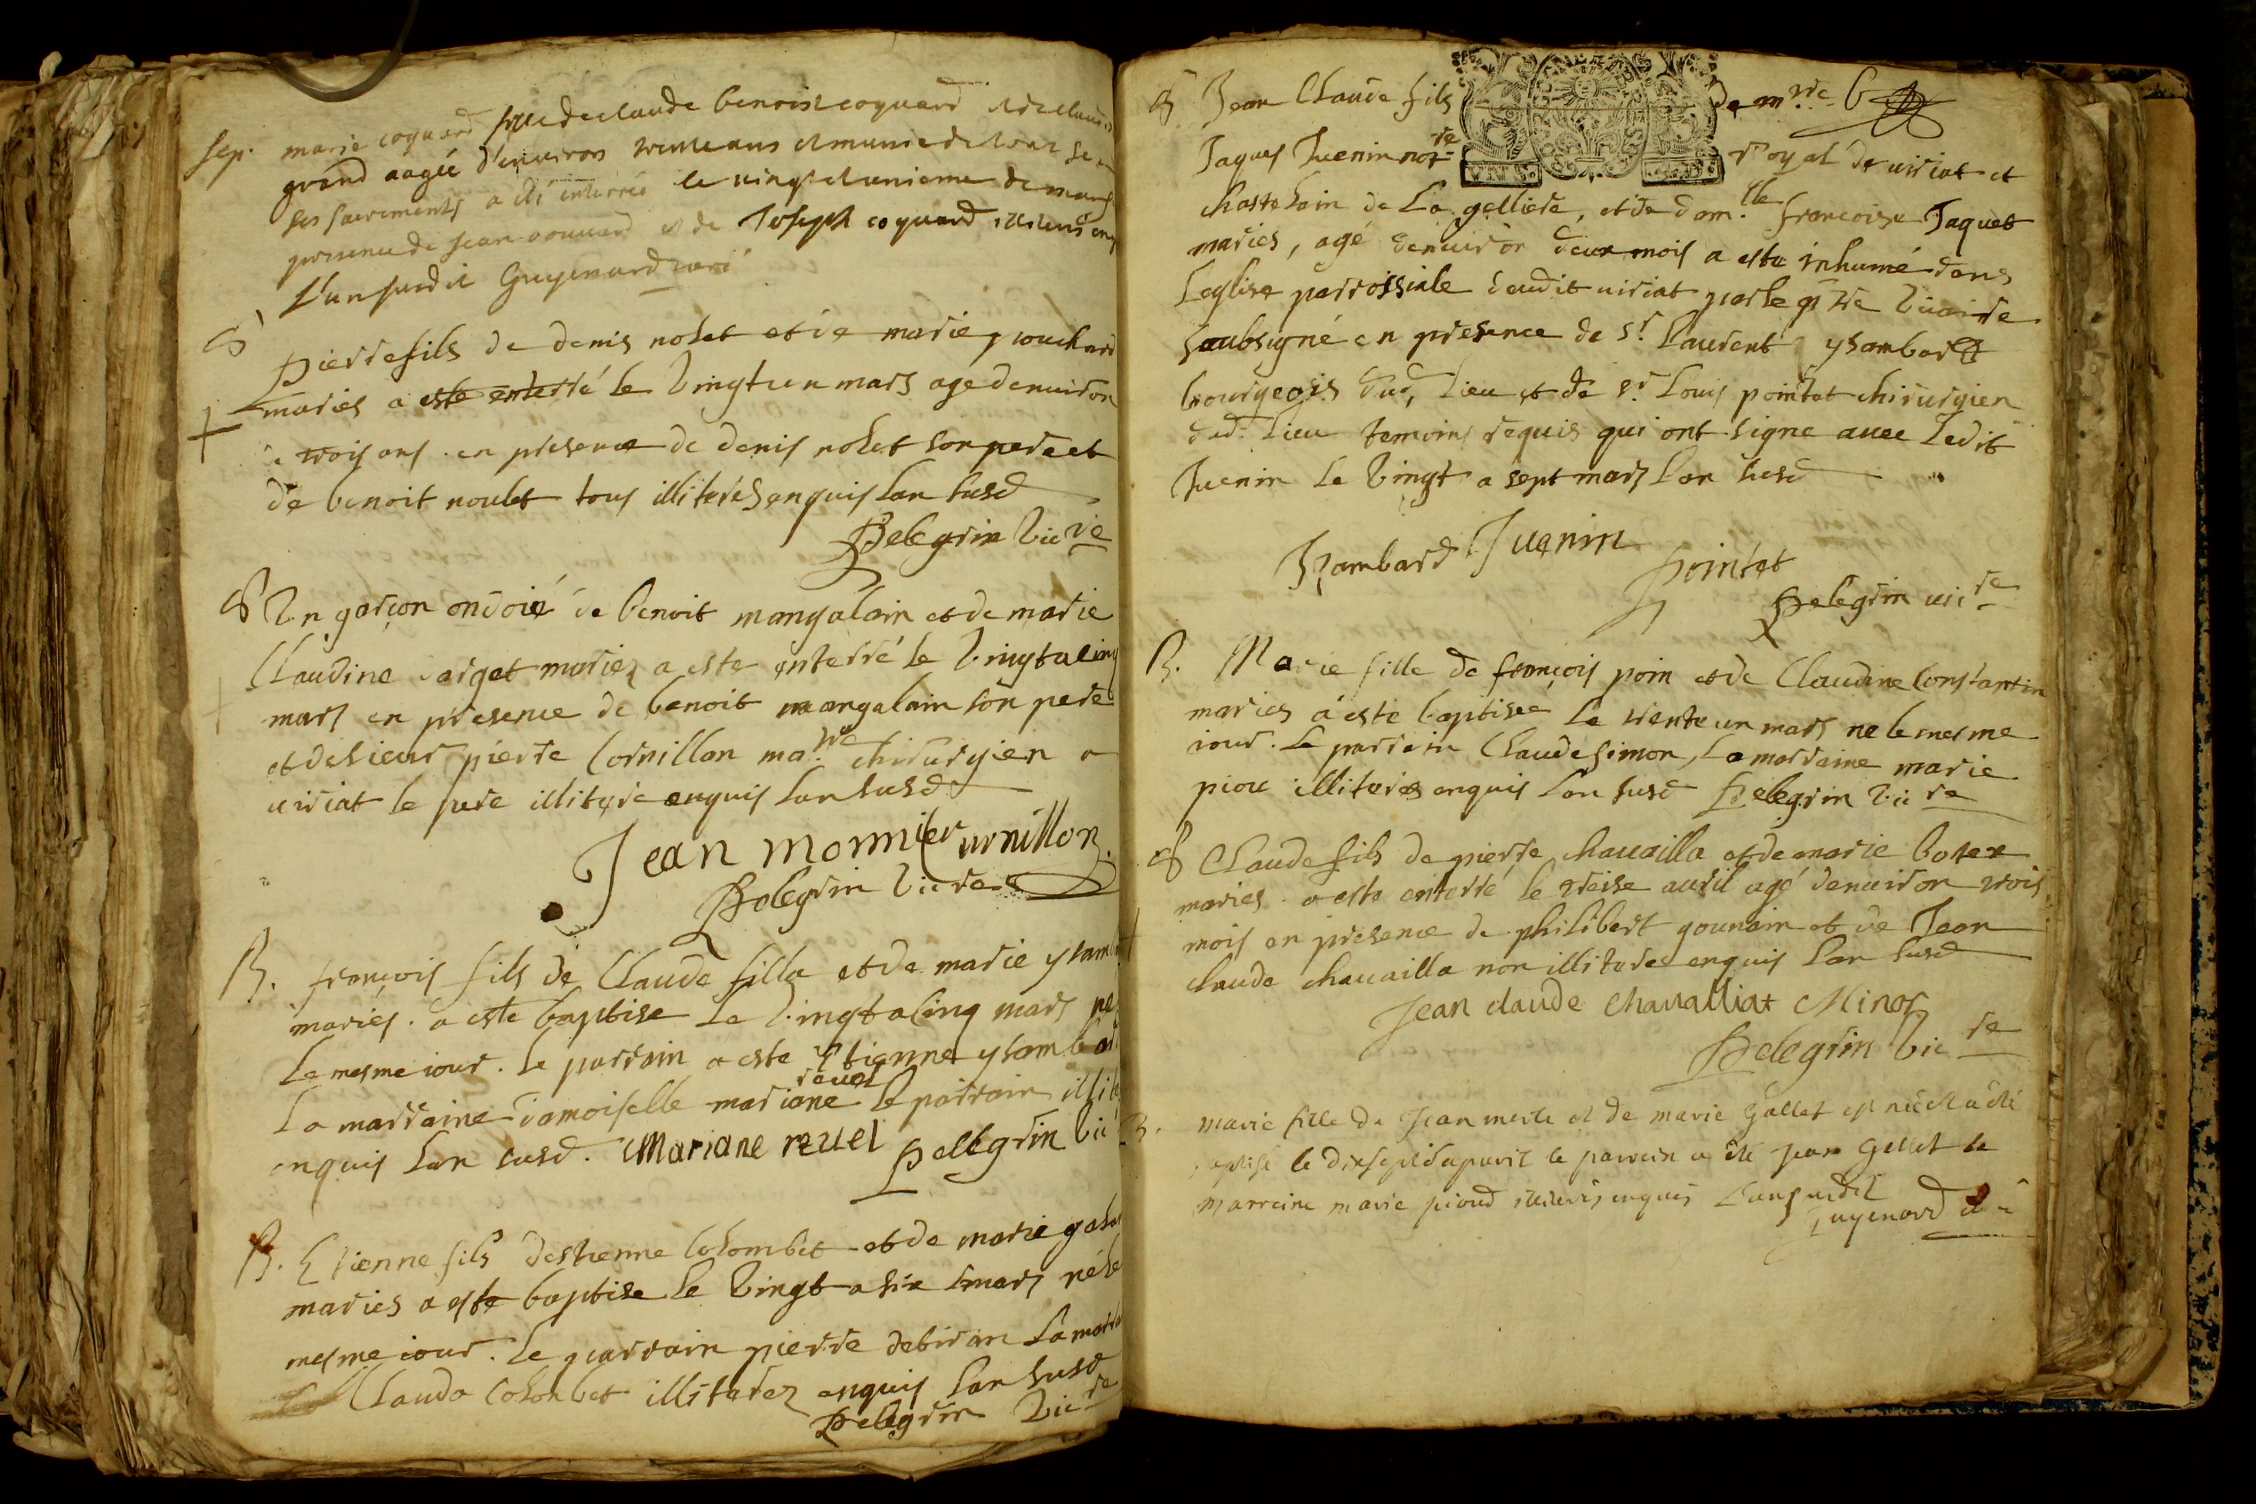 sep. marie coquard fille de claude benoist coquard et de claud
grand aagée d'environ trente ans et munie de tous
ses sacrements a été enterrée le vingt et unieme de mars
presence de jean et de Joseph coquard illiterés enq
L'an susdit Guyenard curé
S Pierre fils de denis nolet et de marie
maries a este enterré le vingt un mars agé denuiron
trois ans en presence de denis nolet son pere et
de benoit noulet tous illiteres enquis lan susd
Pelegrin vicre
S Un garçon ondoié de benoit mangalain et de marie
Claudine mariez a este enterré le vingt a cinq
mars en presence de benoit mangalain son pere
et de sieur pierre Cornillon mare chirurgien a
uiriat le pere illitere enquis lan susd
Jean monnier Curnillon
Pelegrin vicre
B. françois fils de Claude filla et de marie ysam
mariés a este baptise le vingt a cinq mars ne
le mesme iour. le parrain a este Etienne ysambar
La marraine damoiselle mariane reuel le parrain illit
enquis lan susd. Mariane reuel Pelegrin vic
B. Etienne fils destienne Colombet et de marie
maries a este baptise le vingt a six mars né le
mesme iour. le parrain pierre debiran La marra
Clauda Colombet illiterez enquis lan susd
Pelegrin vicre
S Jean Claude fils de mre
Jaques Juenin notre royal de uiriat et
chastelain de La gelliere, et de damlle francoise Jaquet
maries, agé denuiron deux mois a este inhumé dans
Leglise parrossiale dudit uiriat par le ptre vicaire
soubsigné en presence de sr laurent ysambard
bourgeois dud. lieu et de sr Louis pointet chirurgien
dud. lieu temoins requis qui ont signe auec ledit
Juenin le vingt a sept mars lan susd
Isambard Juenin
Pointet
Pelegrin uicre
B. Marie fille de françois poin et de Claudine Constantin
maries a este baptisee le trente un mars ne le mesme
iour. le parrain Claude simon, La marraine marie
piou illiteres enquis lan susd Pelegrin vicre
S Claude fils de pierre chauailla et de marie
maries a este enterré le treise auril agé denuiron trois
mois en presence de philibert gounain et de Jean
claude chauailla non illitere enquis lan susd
Jean claude chauaillat Minor
Pelegrin vicre
B. marie fille de Jean merle et de marie Gallet est née et a été
baptisé le dixsept d'apvril le parrein a été jean Gellet la
marreine marie pioud illiterés enquis L'an susdit
Guyenard